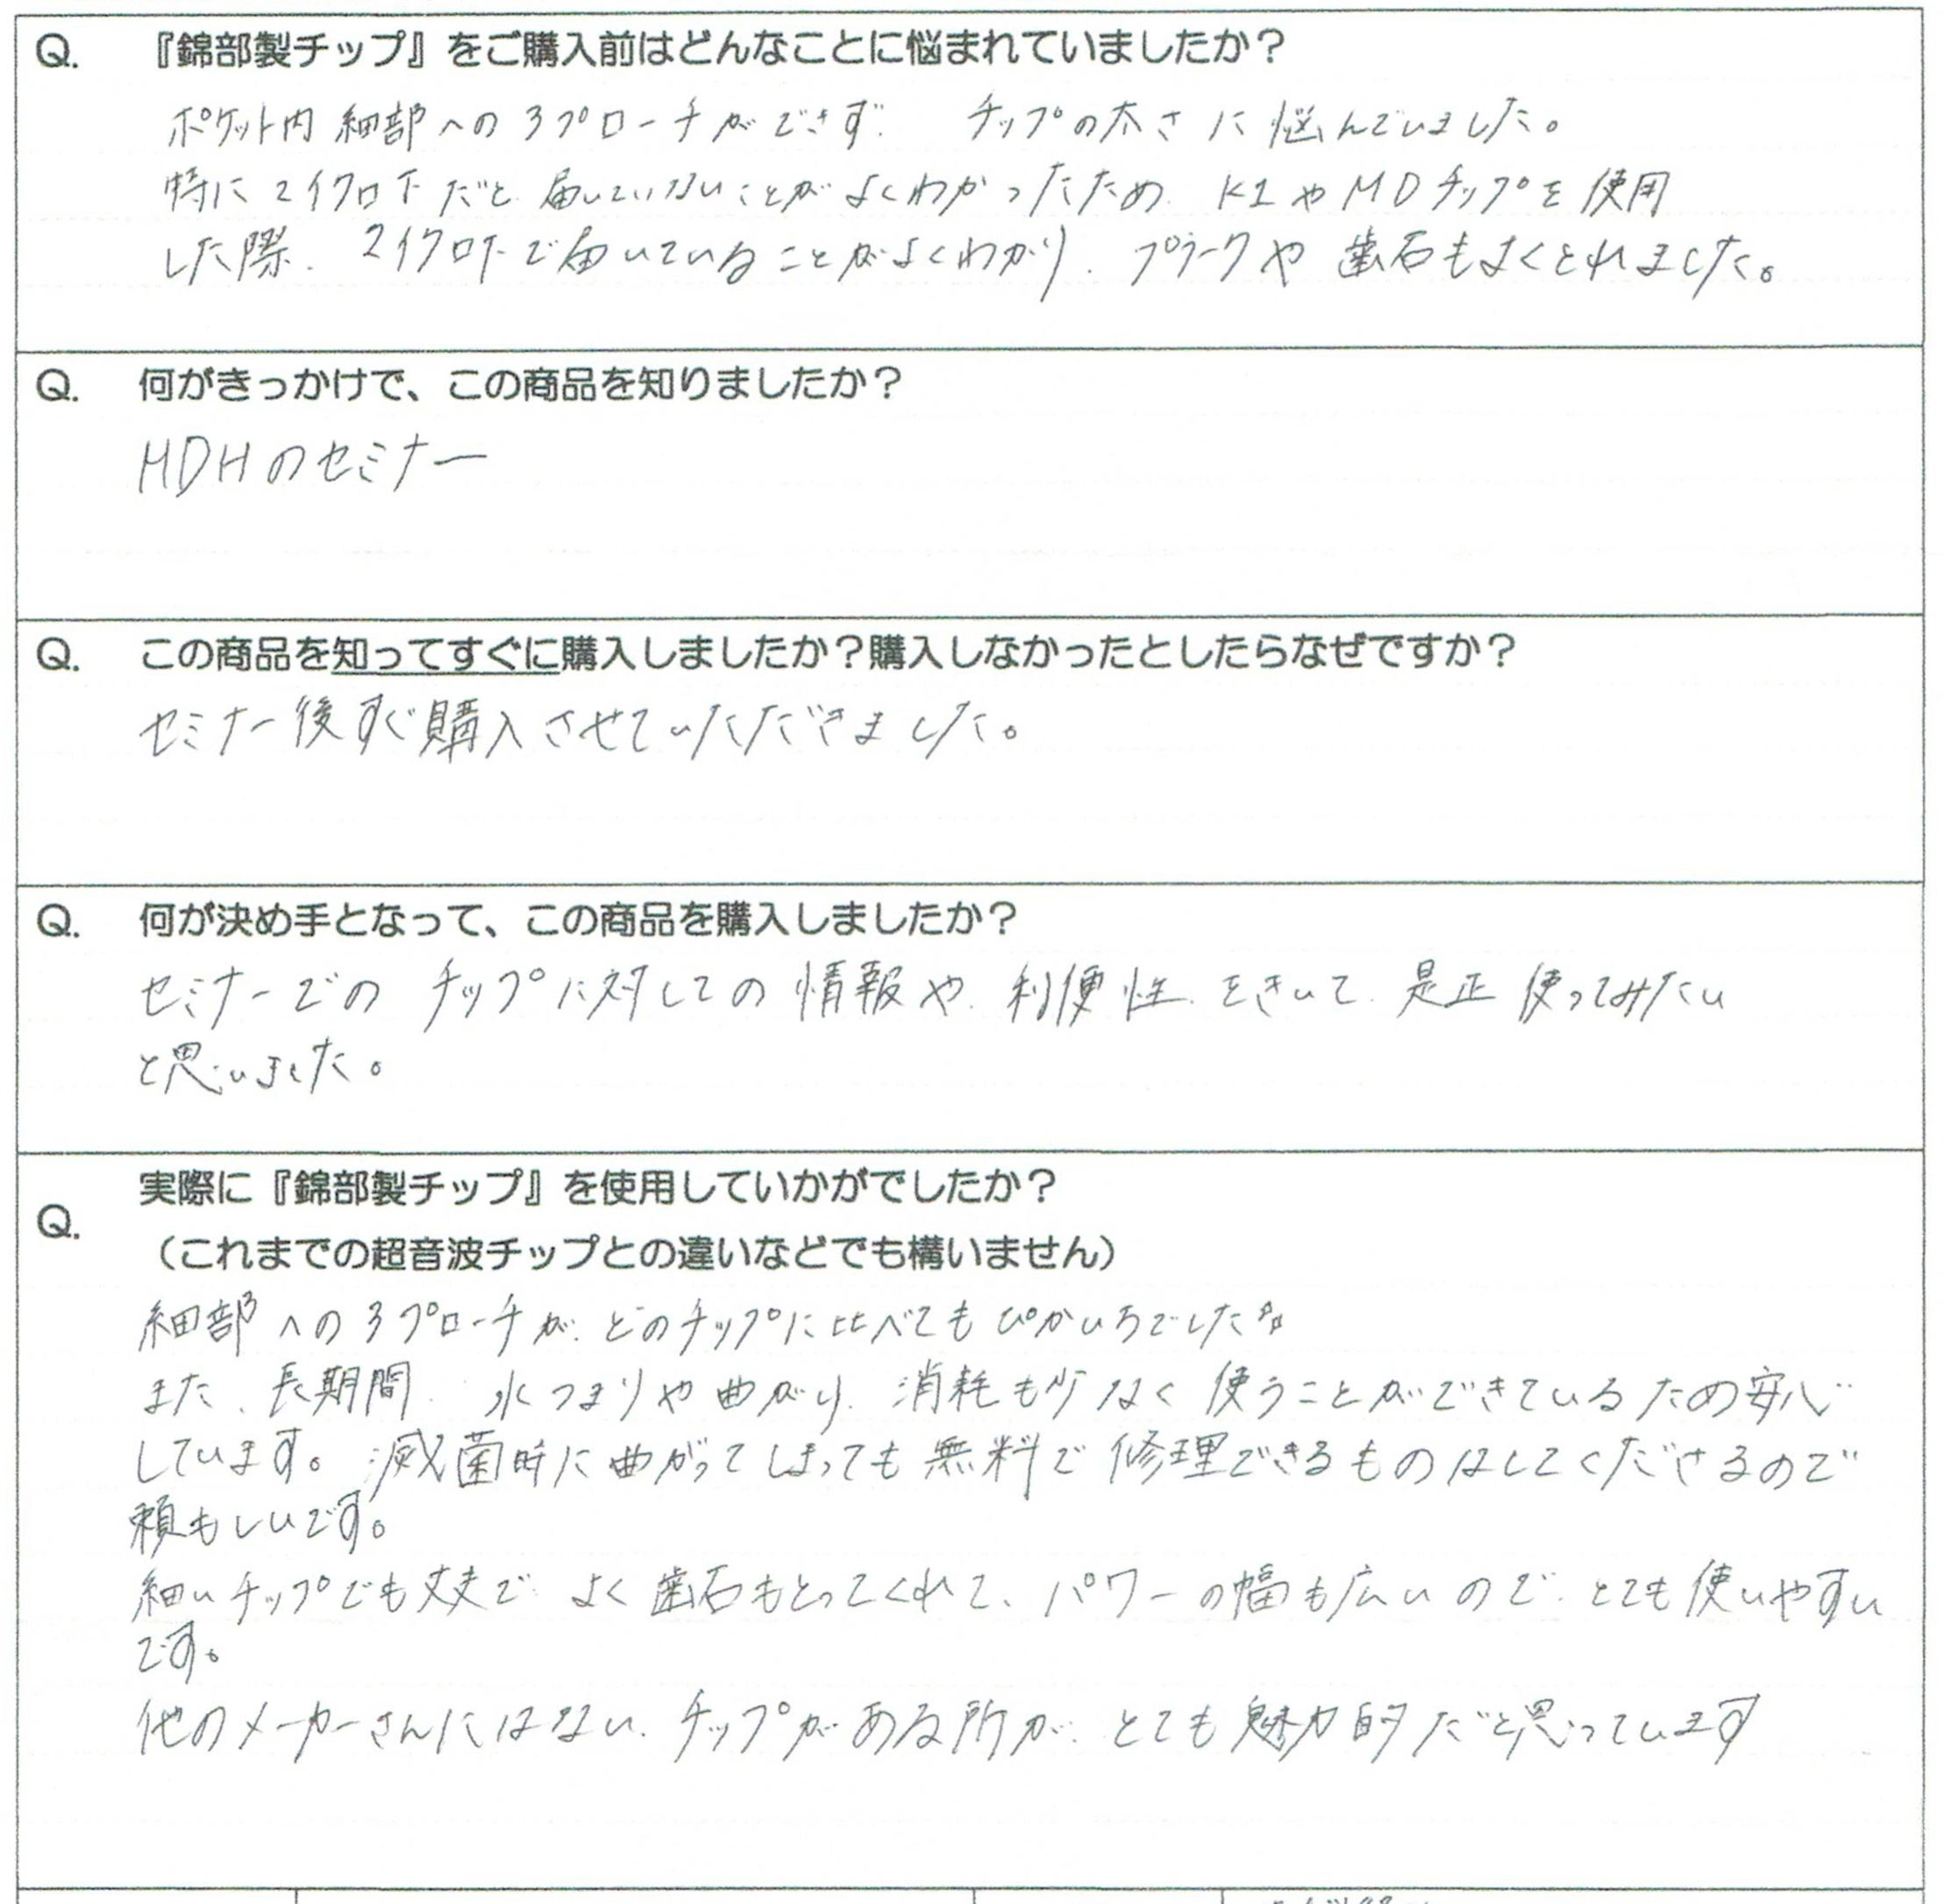 Q. 『錦部製チップ』をご購入前はどんなことに悩まれていましたか？
ポケット内細部へのアプローチができず、チップの太さに悩んでいました。
特にマイクロ下だと届いていないことがよくわかったため、K1やMDチップを使用
した際、マイクロ下で届いていることがよくわかり、プラークや歯石もよくとれました。
Q. 何がきっかけで、この商品を知りましたか？
HDHのセミナー
Q. この商品を知ってすぐに購入しましたか？購入しなかったとしたらなぜですか？
セミナー後すぐ購入させていただきました。
Q. 何が決め手となって、この商品を購入しましたか？
セミナーでのチップに対しての情報や、利便性をきいて、是正使ってみたい
と思いました。
Q. 実際に『錦部製チップ』を使用していかがでしたか？
（これまでの超音波チップとの違いなどでも構いません）
細部へのアプローチが、どのチップに比べてもぴかいちでした☆
また、長期間、水つまりや曲がり、消耗も少なく使うことができているため安心
しています。滅菌時に曲がってしまっても無料で修理できるものはしてくださるので
頼もしいです。
細いチップでも丈夫で、よく歯石もとってくれて、パワーの幅も広いので、とても使いやすい
です。
他のメーカーさんにはない、チップがある所が、とても魅力的だと思っています